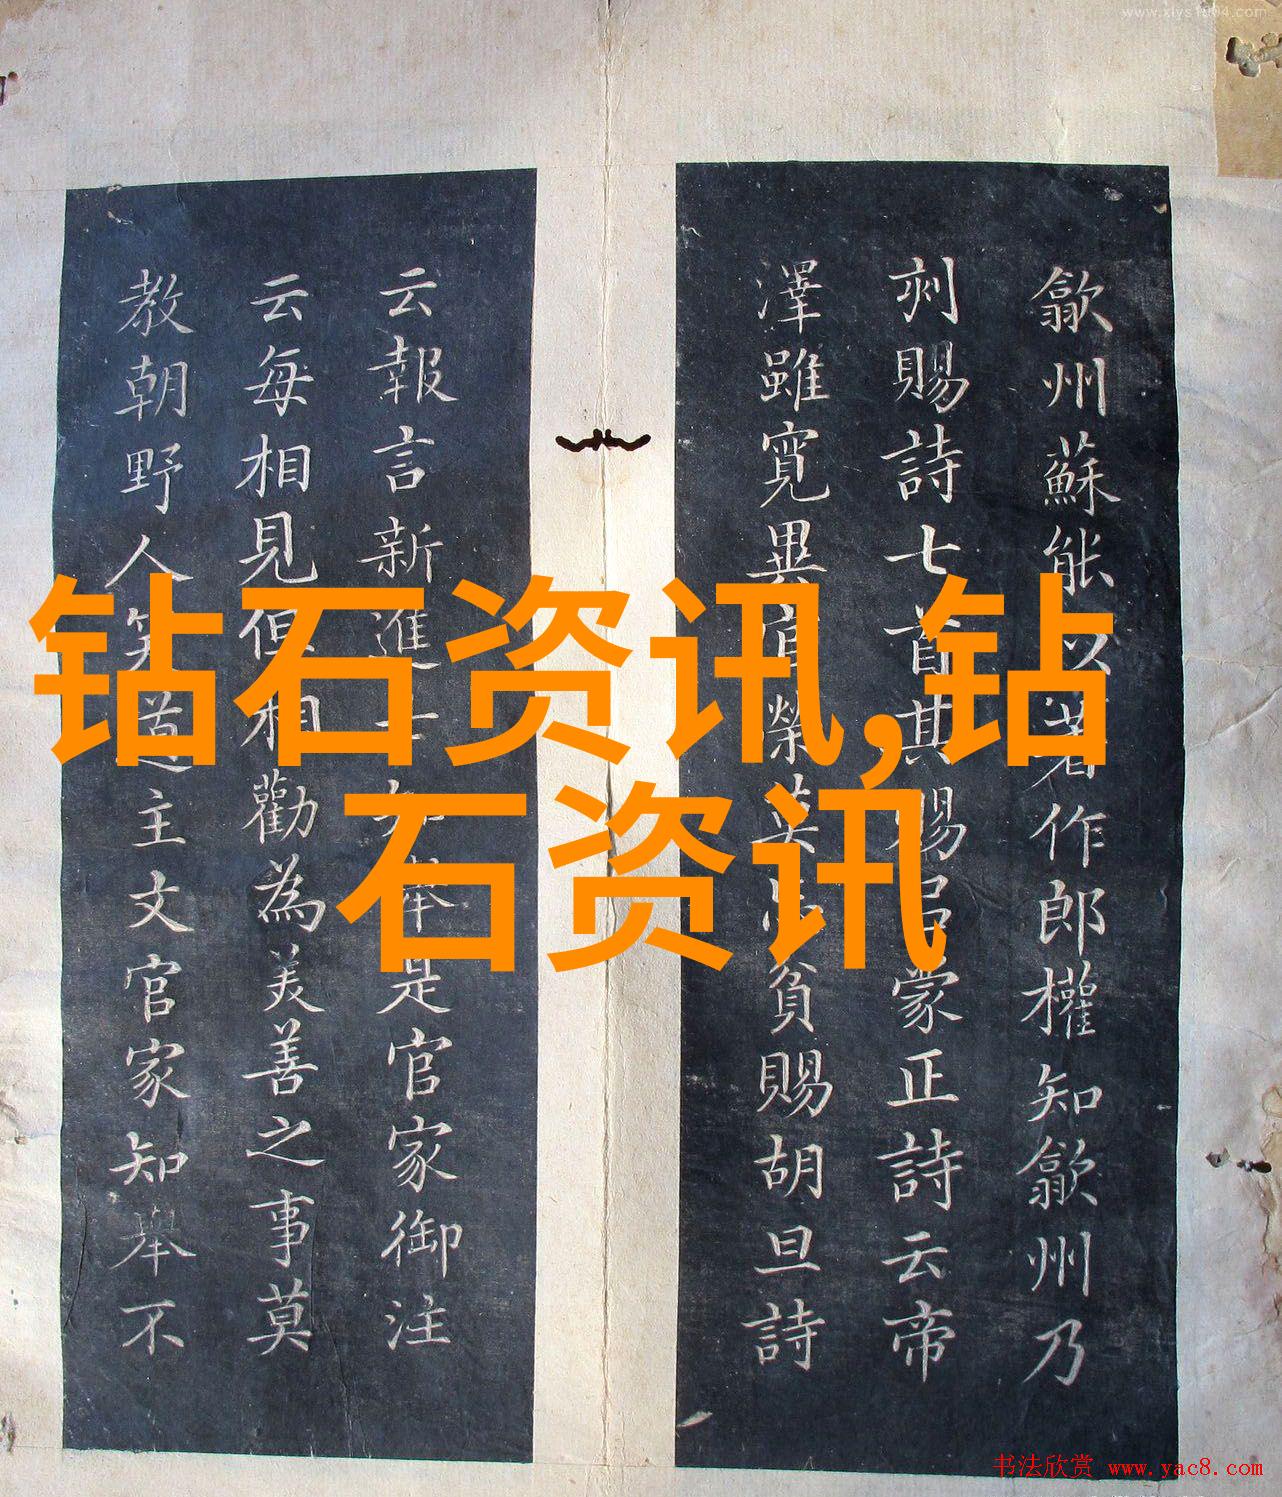 www.xlys1904.com
歙州蘇能以著作郎權知歙州乃
刻賜詩七首其賜吕蒙正詩云帝
澤雖寬異榮莫貧賜胡旦詩
云報言新進士知舉是官家御注
云每相見但相勸為美善之事莫
教朝野人笑道主文官家知舉不
钻石资讯,钻
石资讯
书法欣赏 www.yac8.com